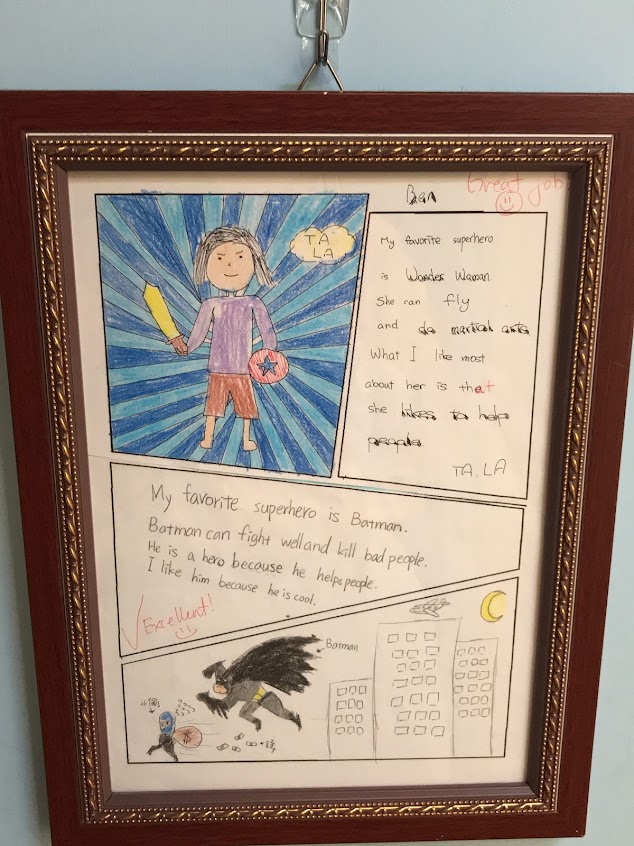 Ben
Great job
TA
LA
My favorite superhero
is Wonder Woman.
She can fly
and do martial arts
What I like most
about her is that
she likes to help
people
TA.LA
My favorite superhero is Batman.
Batman can fight well and kill bad people.
He is a hero because he helps people.
I like him because he is cool.
Excellent!
Batman
小偷
$
錢